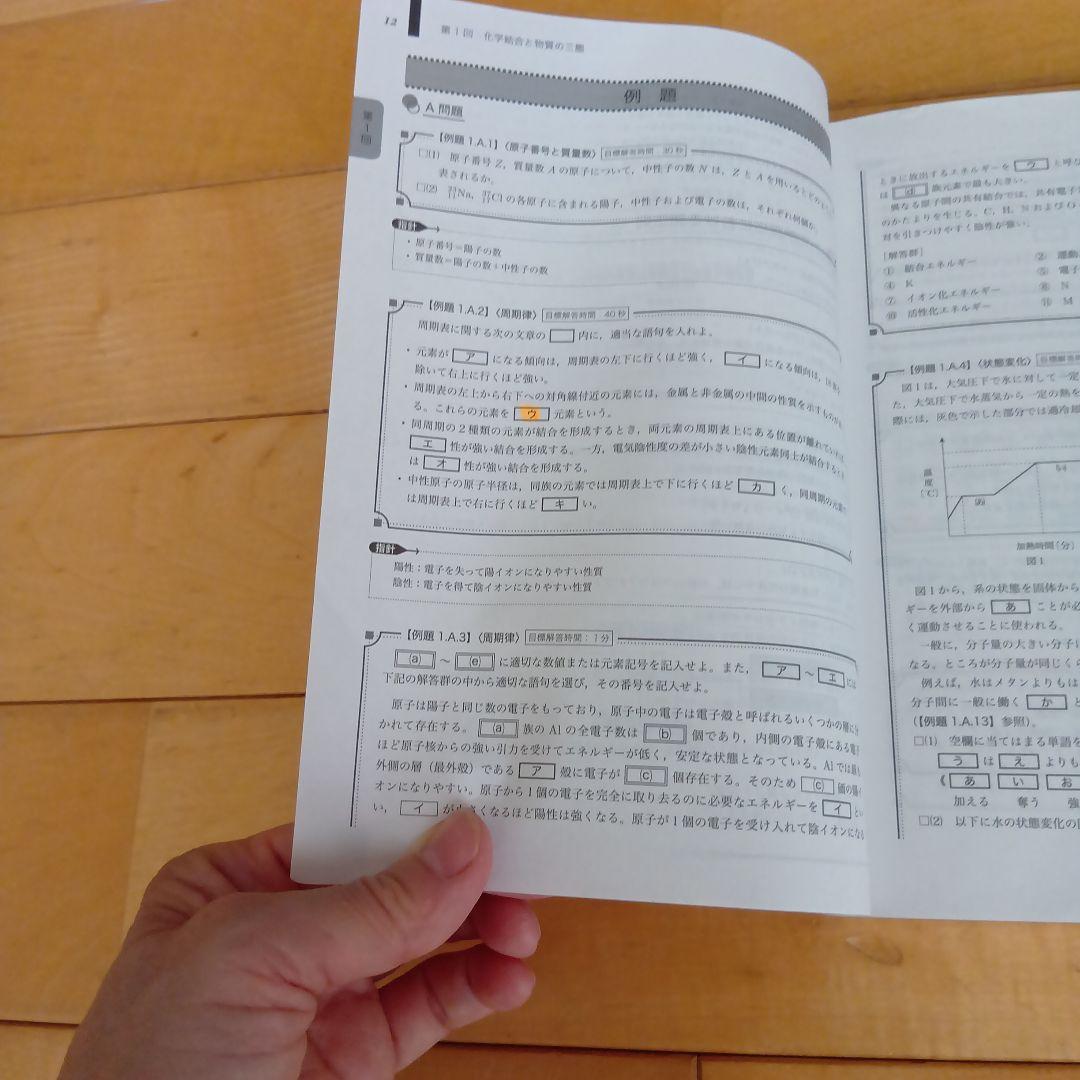 12
第1回 化学結合と物質の三態
例 題
第1回
A 問題
【例題 1.A.1】〈原子番号と質量数〉 目標解答時間 30秒
□(1) 原子番号 Z, 質量数 A の原子について, 中性子の数 N は, Z と A を用いるとどのよう
表されるか。
□(2) ²³₁₁Na, ³⁷₁₇Cl の各原子に含まれる陽子, 中性子および電子の数は, それぞれ何個か。
指針
・原子番号=陽子の数
・質量数=陽子の数+中性子の数
【例題 1.A.2】〈周期律〉 目標解答時間 40秒
周期表に関する次の文章の □ 内に, 適当な語句を入れよ。
・元素が ア になる傾向は, 周期表の左下に行くほど強く, イ になる傾向は,
除いて右上に行くほど強い。
・周期表の左上から右下への対角線付近の元素には, 金属と非金属の中間の性質を示すものが
る。これらの元素を ウ 元素という。
・同周期の2種類の元素が結合を形成するとき, 両元素の周期表上にある位置が離れていれば
エ 性が強い結合を形成する。一方, 電気陰性度の差が小さい陰性元素同士が結合すると
は オ 性が強い結合を形成する。
・中性原子の原子半径は, 同族の元素では周期表上で下に行くほど カ く, 同周期の元素で
は周期表上で右に行くほど キ い。
指針
陽性:電子を失って陽イオンになりやすい性質
陰性:電子を得て陰イオンになりやすい性質
【例題 1.A.3】〈周期律〉 目標解答時間:1分
(a) ～ (e) に適切な数値または元素記号を記入せよ。また, ア ～ エ には
下記の解答群の中から適切な語句を選び, その番号を記入せよ。
原子は陽子と同じ数の電子をもっており, 原子中の電子は電子殻と呼ばれるいくつかの層に分
かれて存在する。 (a) 族の Al の全電子数は (b) 個であり, 内側の電子殻にある電子
ほど原子核からの強い引力を受けてエネルギーが低く, 安定な状態となっている。Al では最も
外側の層(最外殻)である ア 殻に電子が (c) 個存在する。そのため (c) 価の陽イ
オンになりやすい。原子から1個の電子を完全に取り去るのに必要なエネルギーを イ とい
い, イ が小さくなるほど陽性は強くなる。原子が1個の電子を受け入れて陰イオンになる
ときに放出するエネルギーを ウ と呼
は (d) 族元素で最も大きい。
異なる原子間の共有結合では, 共有電子
のかたよりを生じる。C, H, N および O
対を引きつけやすく陰性が強い。
[解答群]
① 結合エネルギー ② 運動
④ K ⑤ 電子
⑦ イオン化エネルギー ⑧ N
⑩ 活性化エネルギー ⑪ M
【例題 1.A.4】〈状態変化〉 目標解答
図1は, 大気圧下で氷に対して一定
た, 大気圧下で水蒸気から一定の熱を
際には, 灰色で示した部分では過冷却
温度〔℃〕
加熱時間〔分〕
図1
図1から, 系の状態を固体から
ギーを外部から あ ことが必
く運動させることに使われる。
一般に, 分子量の大きい分子に
なる。ところが分子量が同じくら
例えば, 水はメタンよりもは
分子間に一般に働く か と
(【例題 1.A.13】参照)。
□(1) 空欄に当てはまる単語を
う は え よりも
《 あ い お
加える 奪う 強
□(2) 以下に水の状態変化の